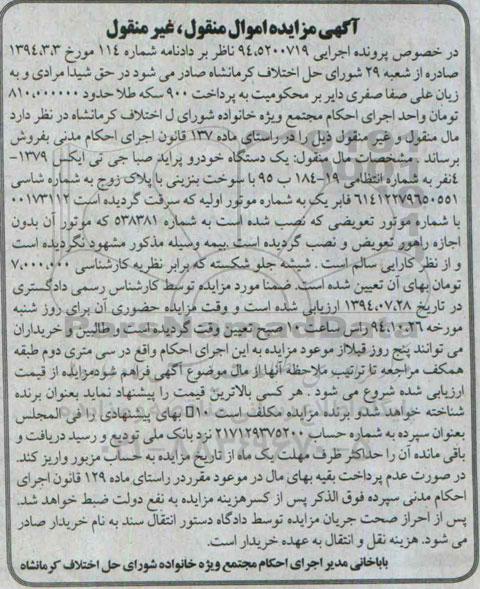 آگهی مزایده اموال منقول، غیر منقول
در خصوص پرونده اجرایی ۹۴٫۵۲۰۰۷۱۹ ناظر بر دادنامه شماره ۱۱۴ مورخ ۱۳۹۴٫۳٫۳
صادره از شعبه ۲۹ شورای حل اختلاف کرمانشاه صادر می شود در حق شیدا مرادی و به
زیان علی صفا صفری دایر بر محکومیت به پرداخت ۹۰۰ سکه طلا حدود ۸۱۰,۰۰۰۰۰۰
تومان واحد اجرای احکام مجتمع ویژه خانواده شورای ل اختلاف کرمانشاه در نظر دارد
مال منقول و غیر منقول ذیل را در راستای ماده ۱۳۷ قانون اجرای احکام مدنی بفروش
برساند . مشخصات مال منقول: یک دستگاه خودرو پراید صبا جی تی ایکس ۱۳۷۹-
٤نفر به شماره انتظامی ۱۹-۱۸۴ ب ۹۵ با سوخت بنزینی با پلاک زوج به شماره شاسی
۶۱۴۱۲۲۷۹۶۵۰۵۵۱ فابر یک به شماره موتور اولیه که سرقت گردیده است ۰۰۱۷۳۱۱۲
با شماره موتور تعویضی که نصب شده است به شماره ۵۳۸۳۸۱ که موتور آن بدون
اجازه راهور تعویض و نصب گردیده است .بیمه وسیله مذکور مشهود نگردیده است
و از نظر کارایی سالم است . شیشه جلو شکسته که برابر نظریه کارشناسی ۷,۰۰۰,۰۰۰
تومان بهای آن تعیین شده است. ضمنا مورد مزایده توسط کارشناس رسمی دادگستری
در تاریخ ۱۳۹۴٫۰۷٫۲۸ ارزیابی شده است و وقت مزایده حضوری آن برای روز شنبه
مورخه ۹۴٫۱۰٫۲۶ راس ساعت ۱۰ صبح تعیین وقت گردیده است و طالبین و خریداران
می توانند پنج روز قبلاز موعود مزایده به این اجرای احکام واقع در سی متری دوم طبقه
همکف مراجعه تا ترتیب ملاحظه آنها از مال موضوع آگهی فراهم شودمزایده از قیمت
ارزیابی شده شروع می شود . هر کسی بالاترین قیمت را پیشنهاد نماید بعنوان برنده
شناخته خواهد شدو برنده مزایده مکلف است ۱۰□ بهای پیشنهادی را فی المجلس
بعنوان سپرده به شماره حساب ۲۱۷۱۲۹۳۷۵۲۰۰ نزد بانک ملی تودیع و رسید دریافت و
باقی مانده آن را حداکثر ظرف مهلت یک ماه از تاریخ مزایده به حساب مزبور واریز کند.
در صورت عدم پرداخت بقیه بهای مال در موعود مقرردر راستای ماده ۱۲۹ قانون اجرای
احکام مدنی سپرده فوق الذکر پس از کسرهزینه مزایده به نفع دولت ضبط خواهد شد.
پس از احراز صحت جریان مزایده توسط دادگاه دستور انتقال سند به نام خریدار صادر
می شود. هزینه نقل و انتقال به عهده خریدار است.
باباخانی مدیر اجرای احکام مجتمع ویژه خانواده شورای حل اختلاف کرمانشاه